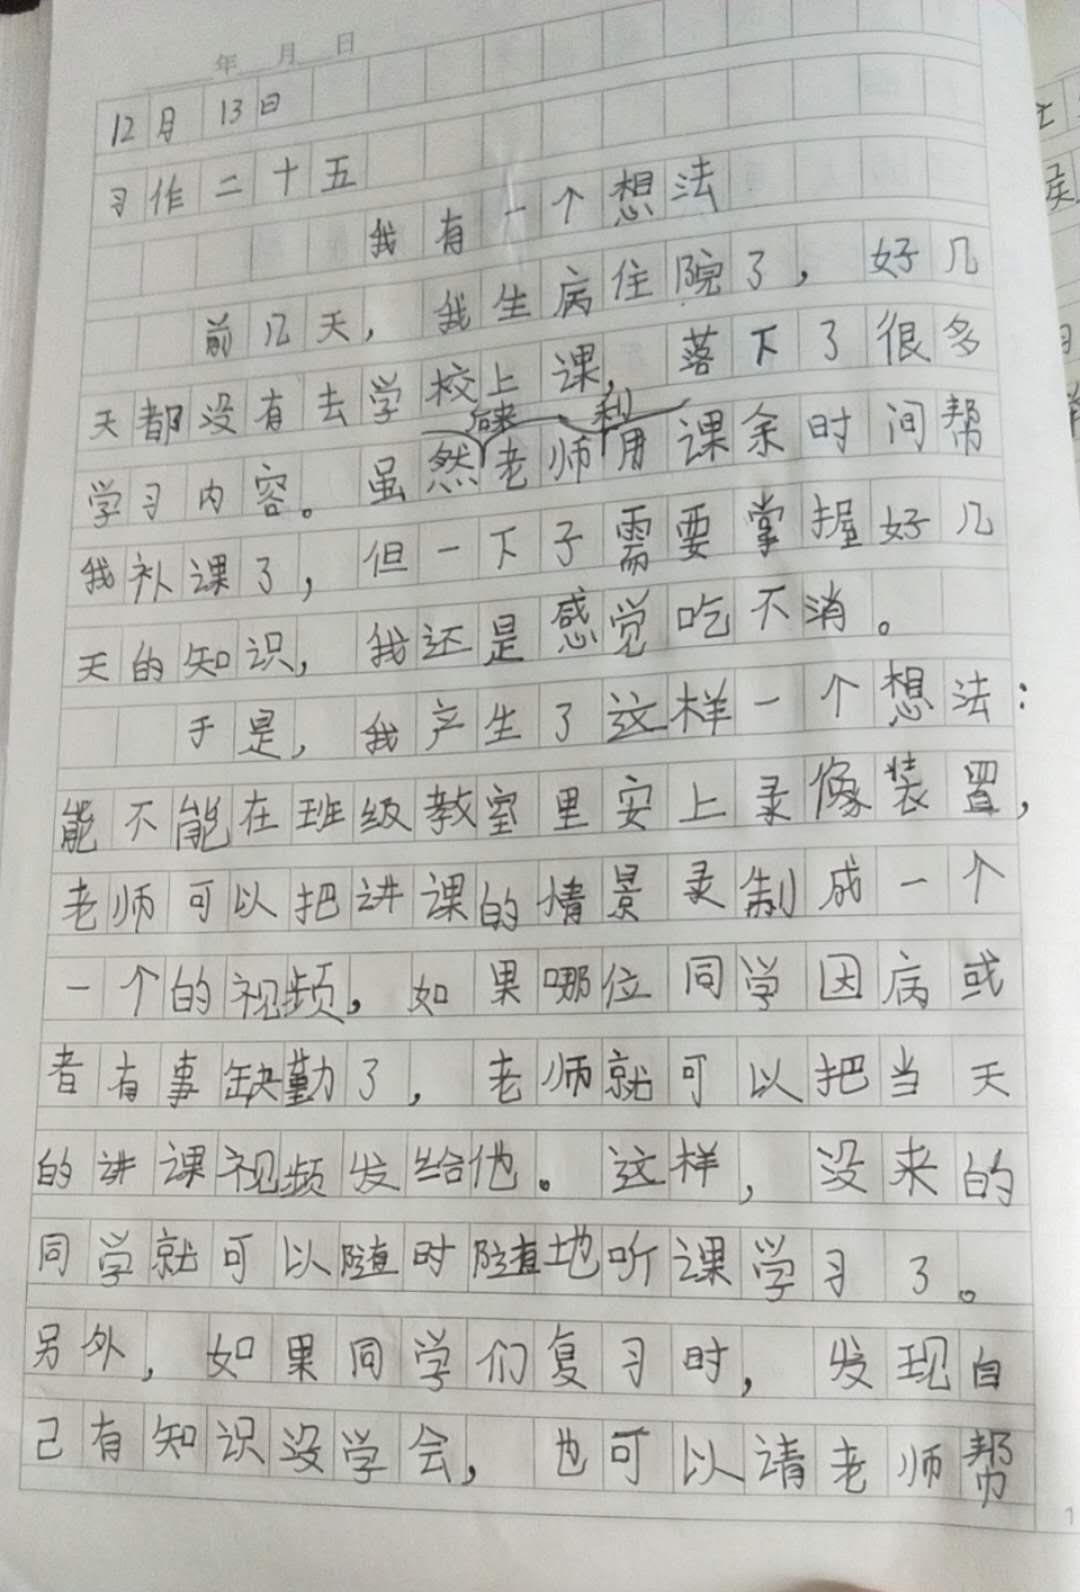 年 月 日
12月 13日
习作二十五
我有一个想法
前几天，我生病住院了，好几
天都没有去学校上课，落下了很多
后来 利
学习内容。虽然老师用课余时间帮
我补课了，但一下子需要掌握好几
天的知识，我还是感觉吃不消。
于是，我产生了这样一个想法：
能不能在班级教室里安上录像装置，
老师可以把讲课的情景录制成一个
一个的视频，如果哪位同学因病或
者有事缺勤了，老师就可以把当天
的讲课视频发给他。这样，没来的
同学就可以随时随地听课学习了。
另外，如果同学们复习时，发现自
己有知识没学会，也可以请老师帮
1